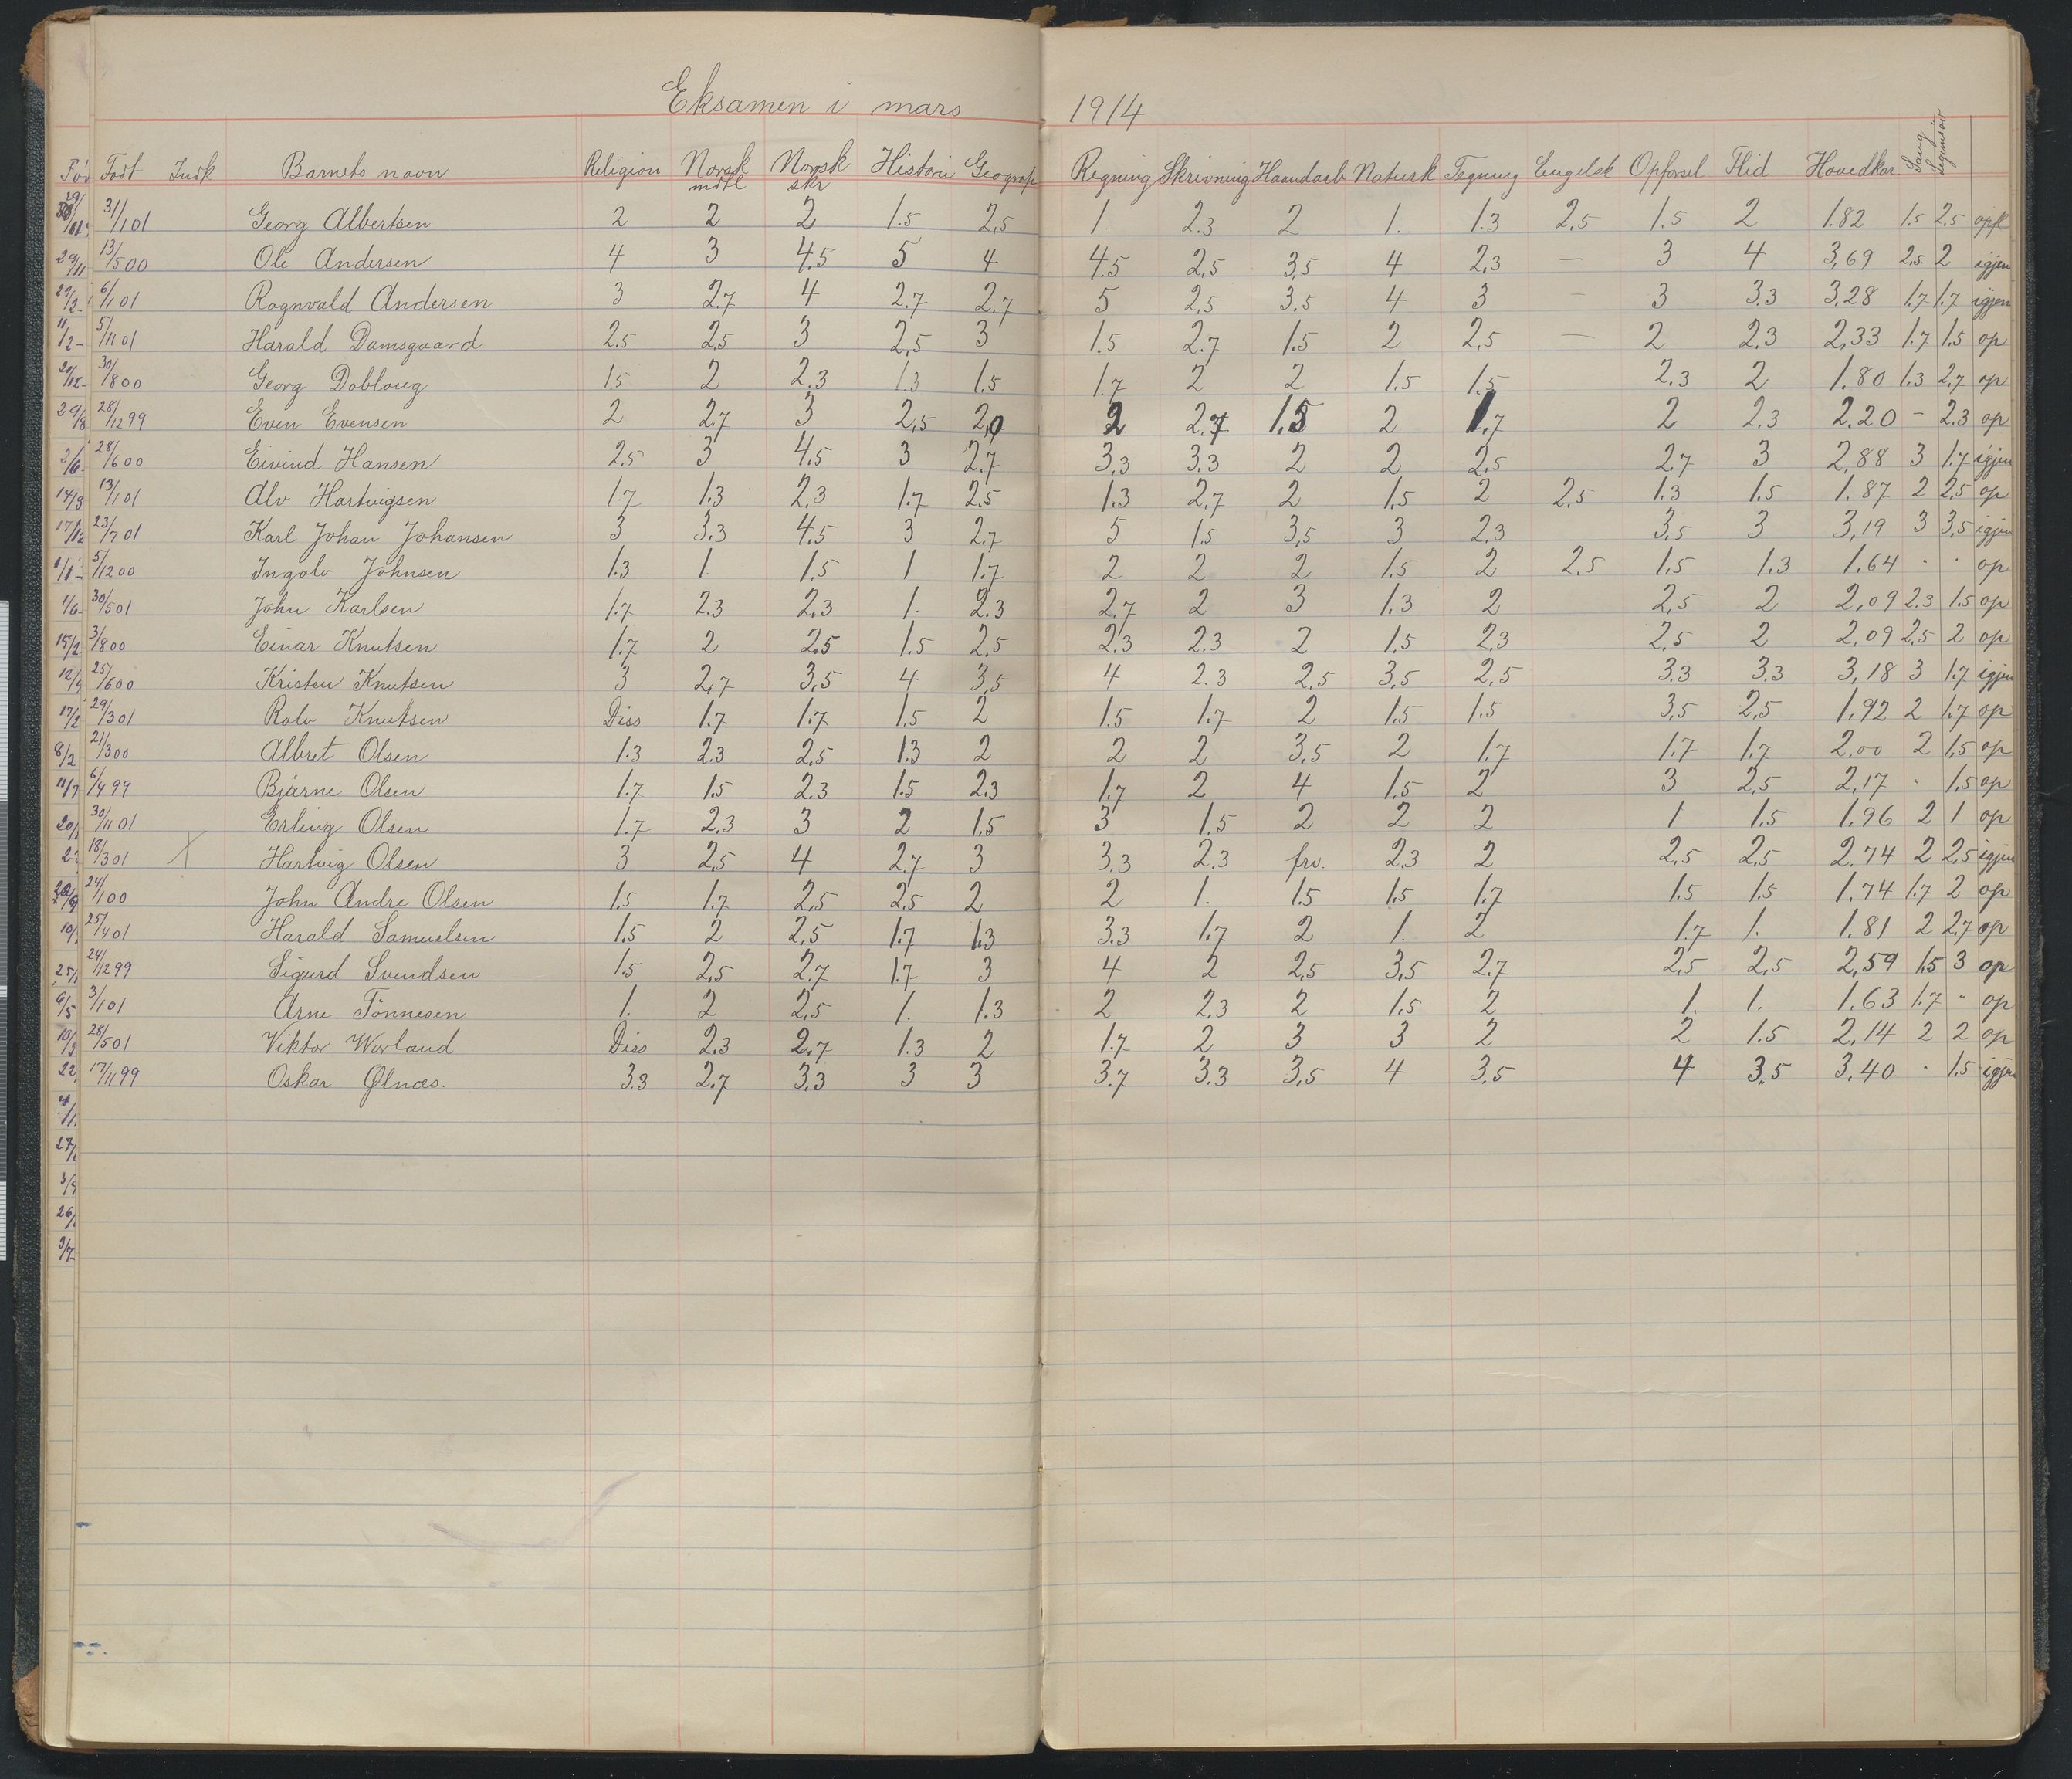 Eksamen i mars 1914
Født Indk Barnets navn Religion Norsk mdtl Norsk skr Historie Geograf Regning Skrivning Haandarb Naturk Tegning Engelsk Opførsel Flid Hovedkar. Sang Legemsøv
31/1 01 Georg Albertsen 2 2 2 1.5 2,5 1. 2.3 2 1. 1.3 2,5 1.5 2 1.82 1.5 2.5 opfl
13/5 00 Ole Andersen 4 3 4.5 5 4 4.5 2,5 3,5 4 2,3 — 3 4 3,69 2,5 2 igjen
6/1 01 Ragnvald Andersen 3 2.7 4 2.7 2.7 5 2,5 3.5 4 3 — 3 3.3 3,28 1.7 1.7 igjen
5/11 01 Harald Damsgaard 2.5 2.5 3 2,5 3 1.5 2.7 1.5 2 2,5 — 2 2.3 2,33 1.7 1.5 op
30/8 00 Georg Dobloug 1.5 2 2.3 1.3 1.5 1.7 2 2 1.5 1.5 2.3 2 1.80 1.3 2.7 op
28/12 99 Even Evensen 2 2.7 3 2,5 2,0 2 2.7 1.5 2 1.7 2 2.3 2.20 – 2.3 op
28/6 00 Eivind Hansen 2.5 3 4.5 3 2.7 3,3 3.3 2 2 2,5 2.7 3 2,88 3 1.7 igjen
13/1 01 Alv Hartvigsen 1.7 1.3 2.3 1.7 2.5 1.3 2,7 2 1.5 2 2,5 1.3 1.5 1.87 2 2,5 op
23/7 01 Karl Johan Johansen 3 3.3 4.5 3 2.7 5 1.5 3,5 3 2.3 3.5 3 3,19 3 3,5 igjen
5/12 00 Ingolv Johnsen 1.3 1. 1.5 1 1.7 2 2 2 1.5 2 2.5 1.5 1.3 1.64 · · op
30/5 01 John Karlsen 1.7 2.3 2,3 1. 2.3 2,7 2 3 1.3 2 2,5 2 2,09 2.3 1.5 op
3/8 00 Einar Knutsen 1.7 2 2.5 1.5 2,5 2.3 2.3 2 1.5 2.3 2,5 2 2.09 2.5 2 op
25/6 00 Kristen Knutsen 3 2,7 3,5 4 3,5 4 2.3 2,5 3,5 2,5 3.3 3.3 3,18 3 1.7 igjen
29/3 01 Rolv Knutsen Diss 1.7 1.7 1.5 2 1.5 1.7 2 1.5 1.5 3,5 2,5 1.92 2 1.7 op
21/3 00 Albret Olsen 1.3 2.3 2,5 1.3 2 2 2 3,5 2 1.7 1.7 1.7 2.00 2 1,5 op
6/4 99 Bjarne Olsen 1.7 1.5 2.3 1.5 2.3 1.7 2 4 1.5 2 3 2,5 2,17 · 1.5 op
30/11 01 Erling Olsen 1.7 2.3 3 2 1.5 3 1.5 2 2 2 1 1.5 1.96 2 1 op
18/3 01 X Hartvig Olsen 3 2,5 4 2.7 3 3,3 2.3 frv. 2.3 2 2,5 2,5 2.74 2 2,5 igjen
24/1 00 John Andre Olsen 1.5 1.7 2,5 2.5 2 2 1. 1.5 1.5 1.7 1.5 1.5 1.74 1.7 2 op
25/4 01 Harald Samuelsen 1.5 2 2,5 1.7 1.3 3.3 1.7 2 1. 2 1.7 1. 1.81 2 2.7 op
24/12 99 Sigurd Svendsen 1.5 2,5 2.7 1.7 3 4 2 2,5 3,5 2.7 2,5 2,5 2,59 1.5 3 op
3/1 01 Arne Tönnesen 1. 2 2,5 1. 1.3 2 2.3 2 1.5 2 1. 1. 1.63 1.7 · op
28/5 01 Viktor Worland Diss 2.3 2.7 1.3 2 1.7 2 3 3 2 2 1.5 2,14 2 2 op
17/11 99 Oskar Ølnæs. 3.3 2.7 3.3 3 3 3.7 3.3 3,5 4 3.5 4 3,5 3.40 · 1.5 igjen